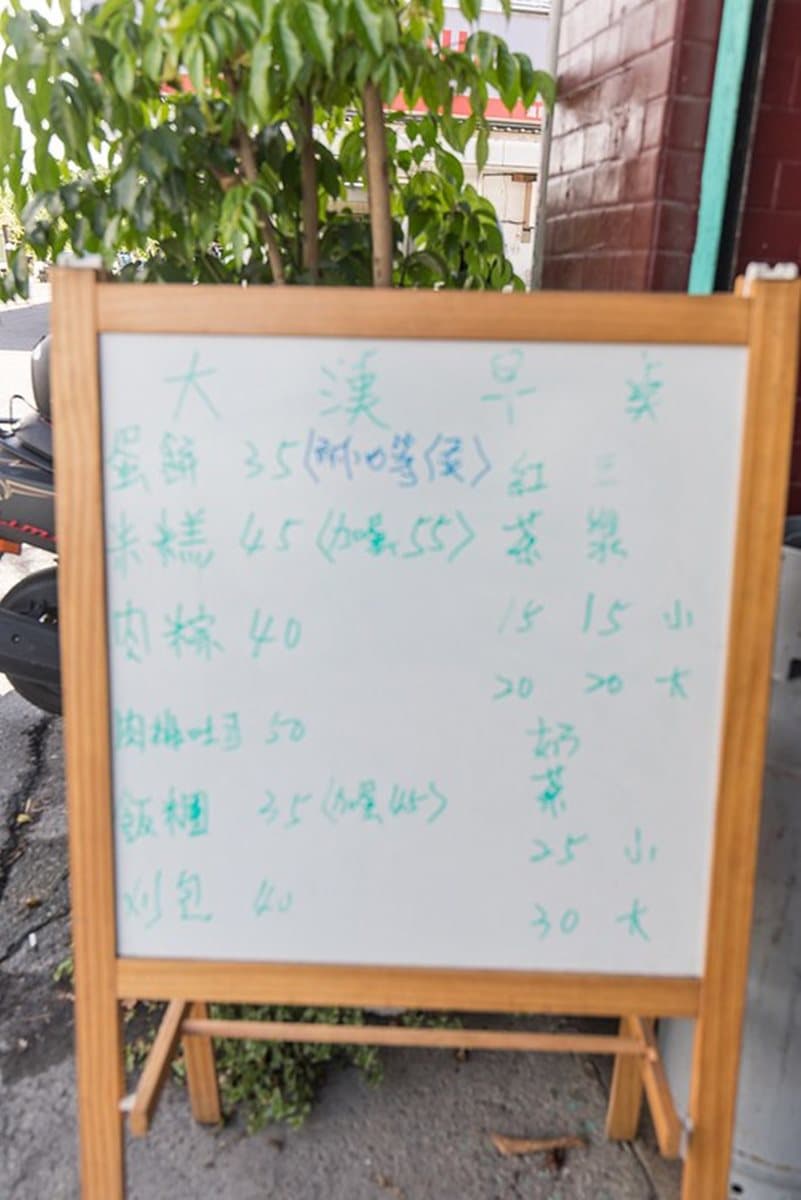 大漢早點
蛋餅 35〈請心等候〉
米糕 45〈加蛋55〉
肉粽 40
肉排吐司 50
飯糰 35〈加蛋45〉
刈包 40
紅茶 豆漿
15 15 小
20 20 大
奶茶
25 小
30 大